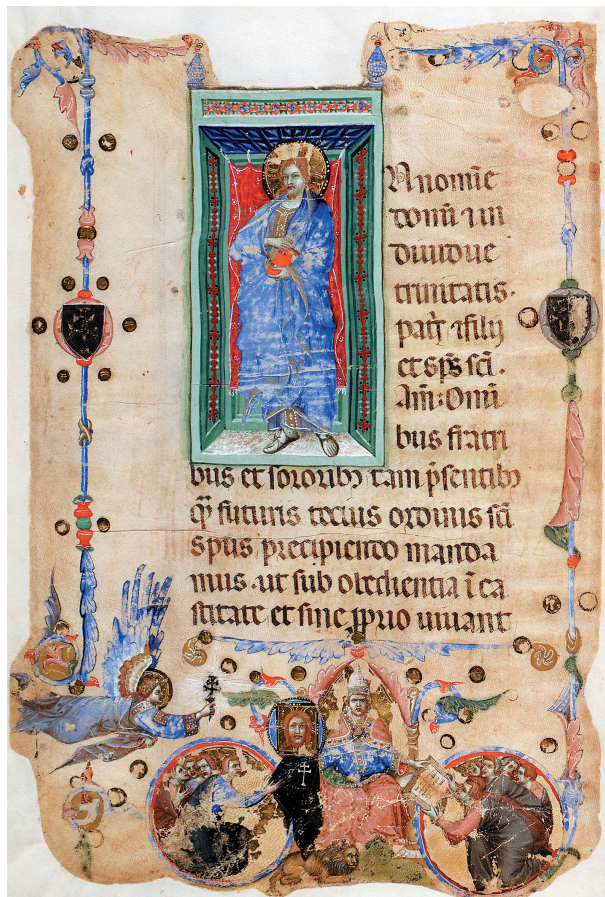 N nomīe
domī ī in
diuidue
trinitatis.
pat̄s ⁊ filij
et sp̄s sc̄i.
Am̄: Omī
bus fratri
bus et sororibꝫ tam p̄sentibꝫ
q̄ futuris tocius ordinis sc̄i
spūs precipiendo manda
mus. ut sub obedientia ī ca
stitate et sine ꝓprio uiuant